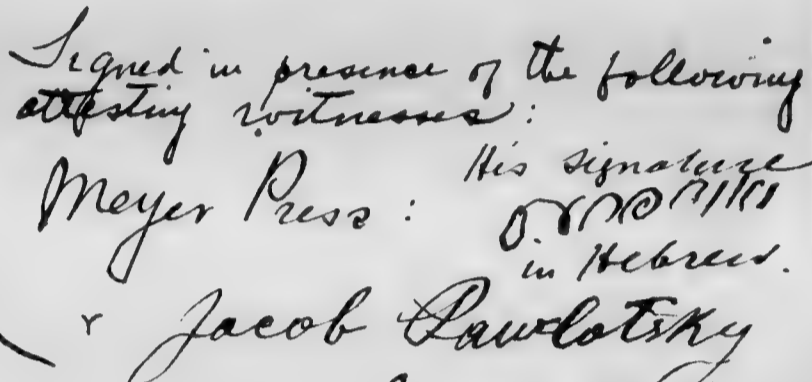 Signed in presence of the following
attesting witnesses:
Meyer Press: His signature
in Hebrew.
Jacob Pawlotsky